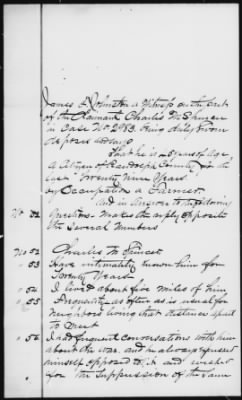 James F. Johnston a Witness on the part
of the Claimant Charles McD
in Case No 2983. being duly sworn
deposes and says
That he is years of Age
a Citizen of Randolph County for the
last Twenty Nine Years
by Occupation a Farmer.
And in Answer to the following
Questions. Makes the reply opposite
the Several Numbers
No 52
53 Have intimately known him for
Twenty Years
54 I live about five Miles of him
55 Frequently as often as is usual for
Neighbors living that distance apart
to Meet
56 I had frequent Conversations with him
about the war, and he always expressed
himself opposed to it and wished
for the Suppression of the Same